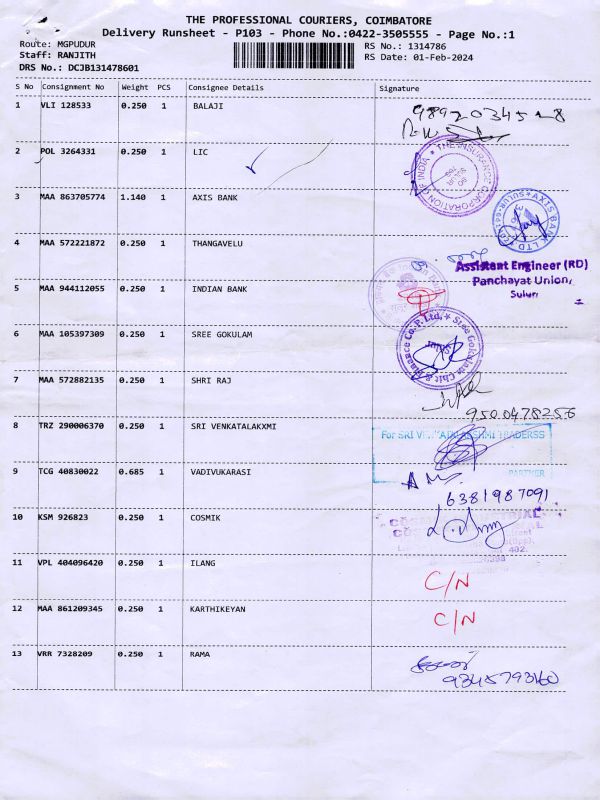 THE PROFESSIONAL COURIERS, COIMBATORE
Delivery Runsheet - P103 - Phone No.:0422-3505555 - Page No.:1
Route: MGPUDUR
RS No.: 1314786
Staff: RANJITH
RS Date: 01-Feb-2024
DRS No.: DCJB131478601
S No Consignment No Weight PCS Consignee Details Signature
1 VLI 128533 0.250 1 BALAJI
2 POL 3264331 0.250 1 LIC
THE INSURANCE CORPORATION OF INDIA
3 MAA 863705774 1.140 1 AXIS BANK
AXIS BANK LTD
4 MAA 572221872 0.250 1 THANGAVELU
Assistant Engineer (RD)
Panchayat Union,
Sulur
5 MAA 944112055 0.250 1 INDIAN BANK
6 MAA 105397309 0.250 1 SREE GOKULAM
Sree Gokulam Chit & Finance Co. P. Ltd,
7 MAA 572882135 0.250 1 SHRI RAJ
9500478256
8 TRZ 290006370 0.250 1 SRI VENKATALAKXMI
PARTNER
9 TCG 40830022 0.685 1 VADIVUKARASI
6381987091
10 KSM 926823 0.250 1 COSMIK
11 VPL 404096420 0.250 1 ILANG
C/N
12 MAA 861209345 0.250 1 KARTHIKEYAN
C/N
13 VRR 7328209 0.250 1 RAMA
9345793160